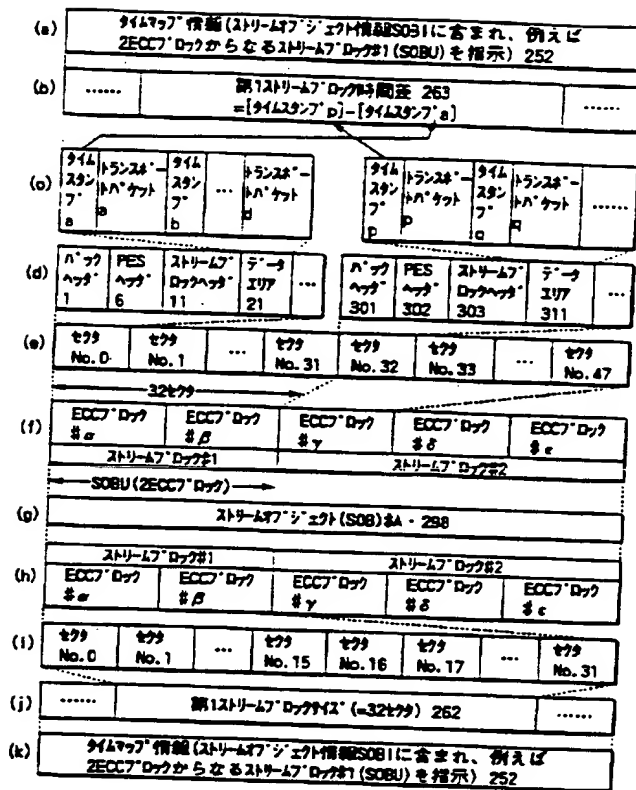 (a)
タイムマップ情報(ストリームオブジェクト情報SOBIに含まれ、例えば
2ECCブロックからなるストリームブロック#1(SOBU)を指示) 252
(b)
……
第1ストリームブロック時間差 263
=[タイムスタンプp]-[タイムスタンプa]
……
(c)
タイムスタンプ a
トランスポートパケット a
タイムスタンプ b
…
トランスポートパケット d
タイムスタンプ p
トランスポートパケット p
タイムスタンプ q
トランスポートパケット q
……
(d)
パックヘッダ 1
PESヘッダ 6
ストリームブロックヘッダ 11
データエリア 21
…
パックヘッダ 301
PESヘッダ 302
ストリームブロックヘッダ 303
データエリア 311
…
(e)
セクタ No.0
セクタ No.1
…
セクタ No.31
セクタ No.32
セクタ No.33
…
セクタ No.47
32セクタ
(f)
ECCブロック #α
ECCブロック #β
ECCブロック #γ
ECCブロック #δ
ECCブロック #ε
ストリームブロック#1
ストリームブロック#2
SOBU(2ECCブロック)
(g)
ストリームオブジェクト(SOB)#A・298
ストリームブロック#1
ストリームブロック#2
(h)
ECCブロック #α
ECCブロック #β
ECCブロック #γ
ECCブロック #δ
ECCブロック #ε
(i)
セクタ No.0
セクタ No.1
…
セクタ No.15
セクタ No.16
セクタ No.17
…
セクタ No.31
(j)
……
第1ストリームブロックサイズ(=32セクタ) 262
……
(k)
タイムマップ情報(ストリームオブジェクト情報SOBIに含まれ、例えば
2ECCブロックからなるストリームブロック#1(SOBU)を指示) 252